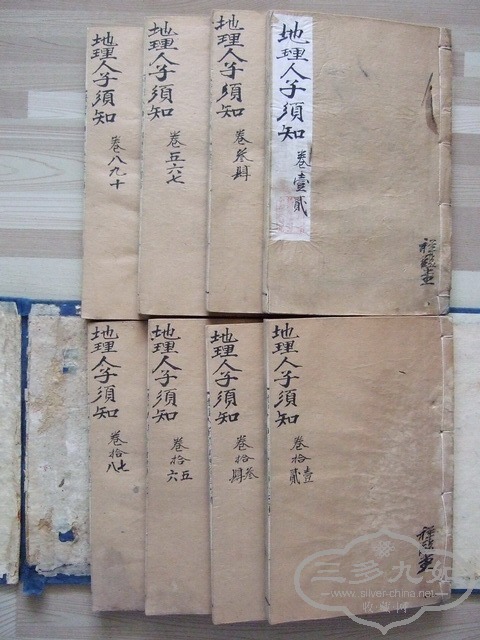 地理人子須知
卷壹貳
地理人子須知
卷叁肆
地理人子須知
卷五六七
地理人子須知
卷八九十
地理人子須知
卷拾壹貳
地理人子須知
卷拾叁肆
地理人子須知
卷拾五六
地理人子須知
卷拾七八
三多九如
www.silver-china.net
收藏网